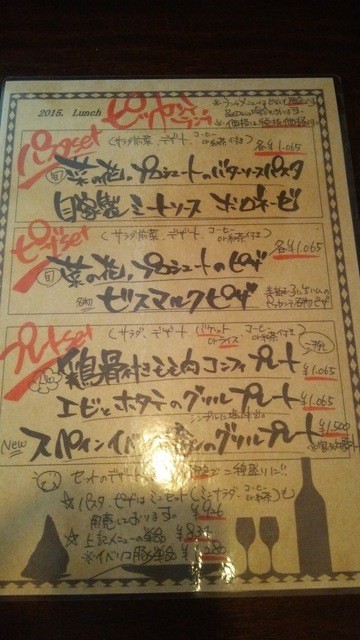 2015. Lunch
パスタset (サラダ、前菜、デザート、コーヒーor紅茶付き) 各¥1.065
旬 菜の花、プロシュートのバターソースパスタ
自家製 ミートソース ボロネーゼ
ピザset (サラダ、前菜、デザート、コーヒーor紅茶付き) 各¥1.065
旬 菜の花、プロシュートのピザ
ビスマルクピザ
プレートset (サラダ、デザート、バケットorライス、コーヒーor紅茶付き)
鶏骨付きもも肉コンフィプレート ¥1.065
エビとホタテのグリルプレート ¥1.065
New スペインイベリコ のグリルプレート ¥1,500
セットのデザート 三種盛りに!!
☆ パスタ、ピザはミニセット(ミニサラダ、コーヒーor紅茶)も
用意しております。 ¥926
☆ 上記メニューの単品 ¥834
※イベリコ豚単品 ¥1,280